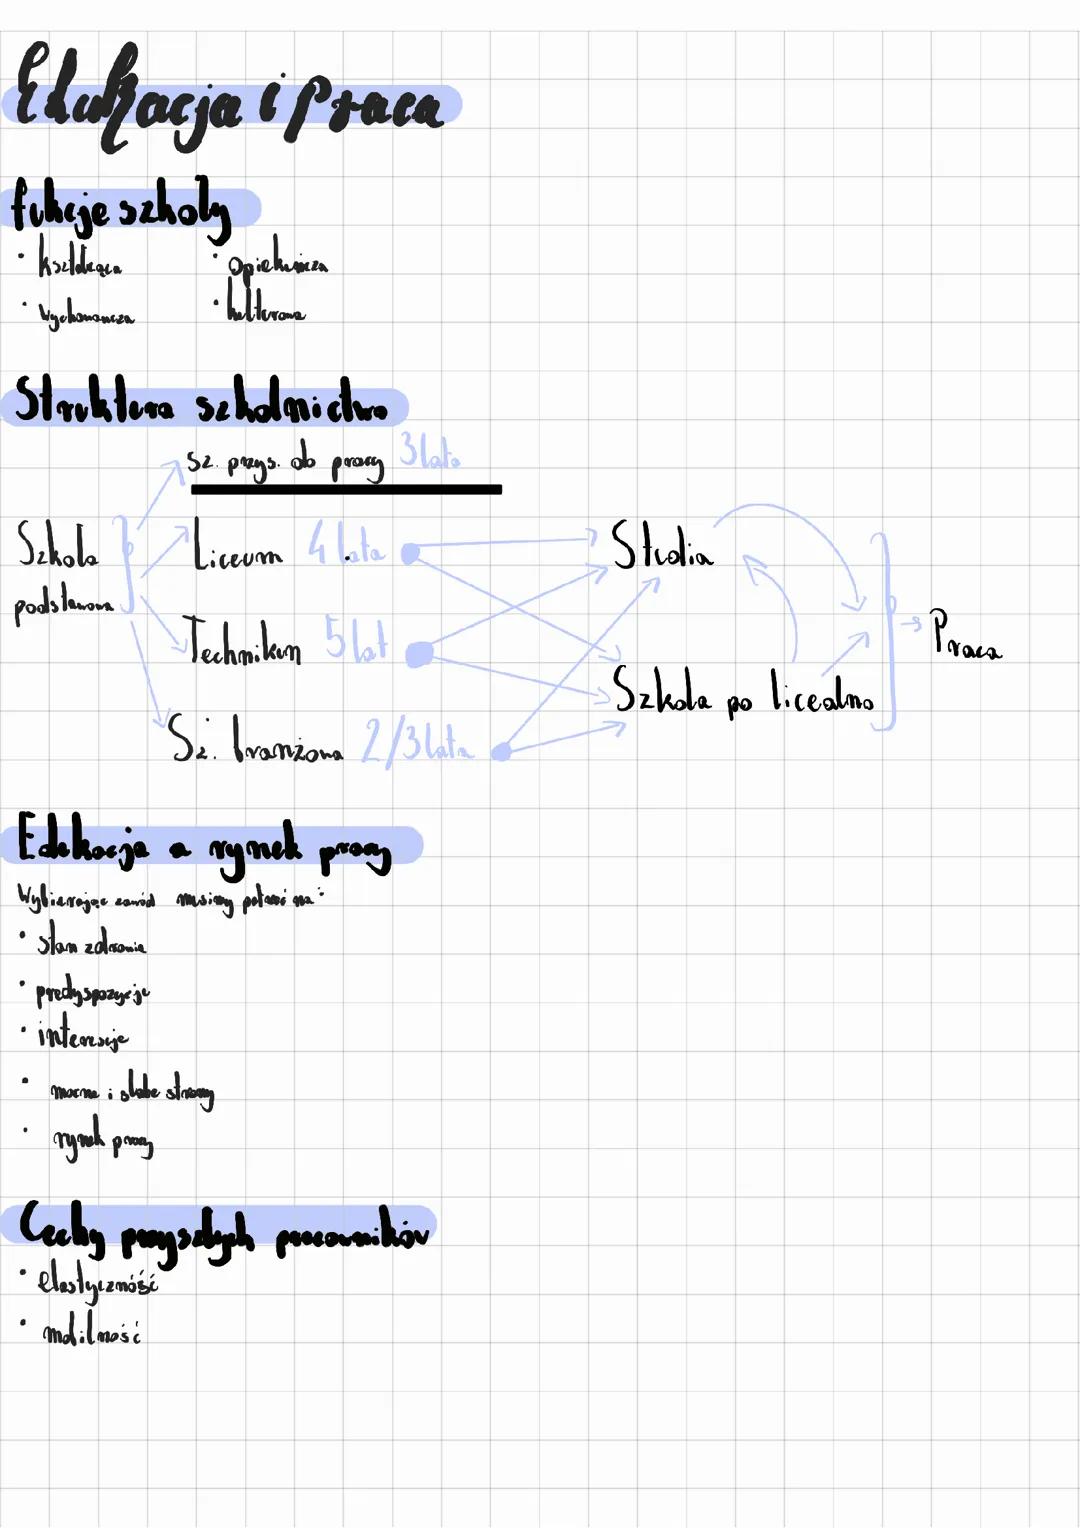 Edukacja i praca
fukcje szkoły
• kształcąca
• opiekuńcza
• wychowawcza
• kulturowa
Struktura szkolnictwa
Sz. przys. do pracy 3 lata
Szkoła podstawowa
Liceum 4 lata
Studia
Technikum 5 lat
Praca
Szkoła po licealna
Sz. branżowa 2/3 lata
Edukacja a rynek pracy
Wybierając zawód musimy patrzeć na:
• stan zdrowia
• predyspozycje
• interesuje
• mocne i słabe strony
• rynek pracy
Cechy przyszłych pracowników
• elastyczność
• mobilność